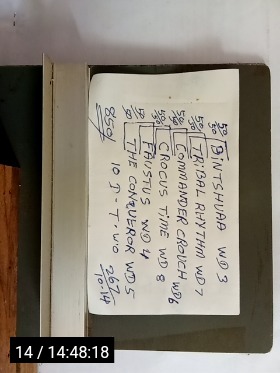 50/50 BINTSHUAA WD 3
50/50 TRIBAL RHYTHM WD 7
50/50 COMMANDER CROUCH WD 6
50/50 CROCUS TIME WD 8
50/50 FAUSTUS WD 4
50/50 THE CONQUEROR WD 5
10 J - T - WO
850/
267/
10.14
14 / 14:48:18